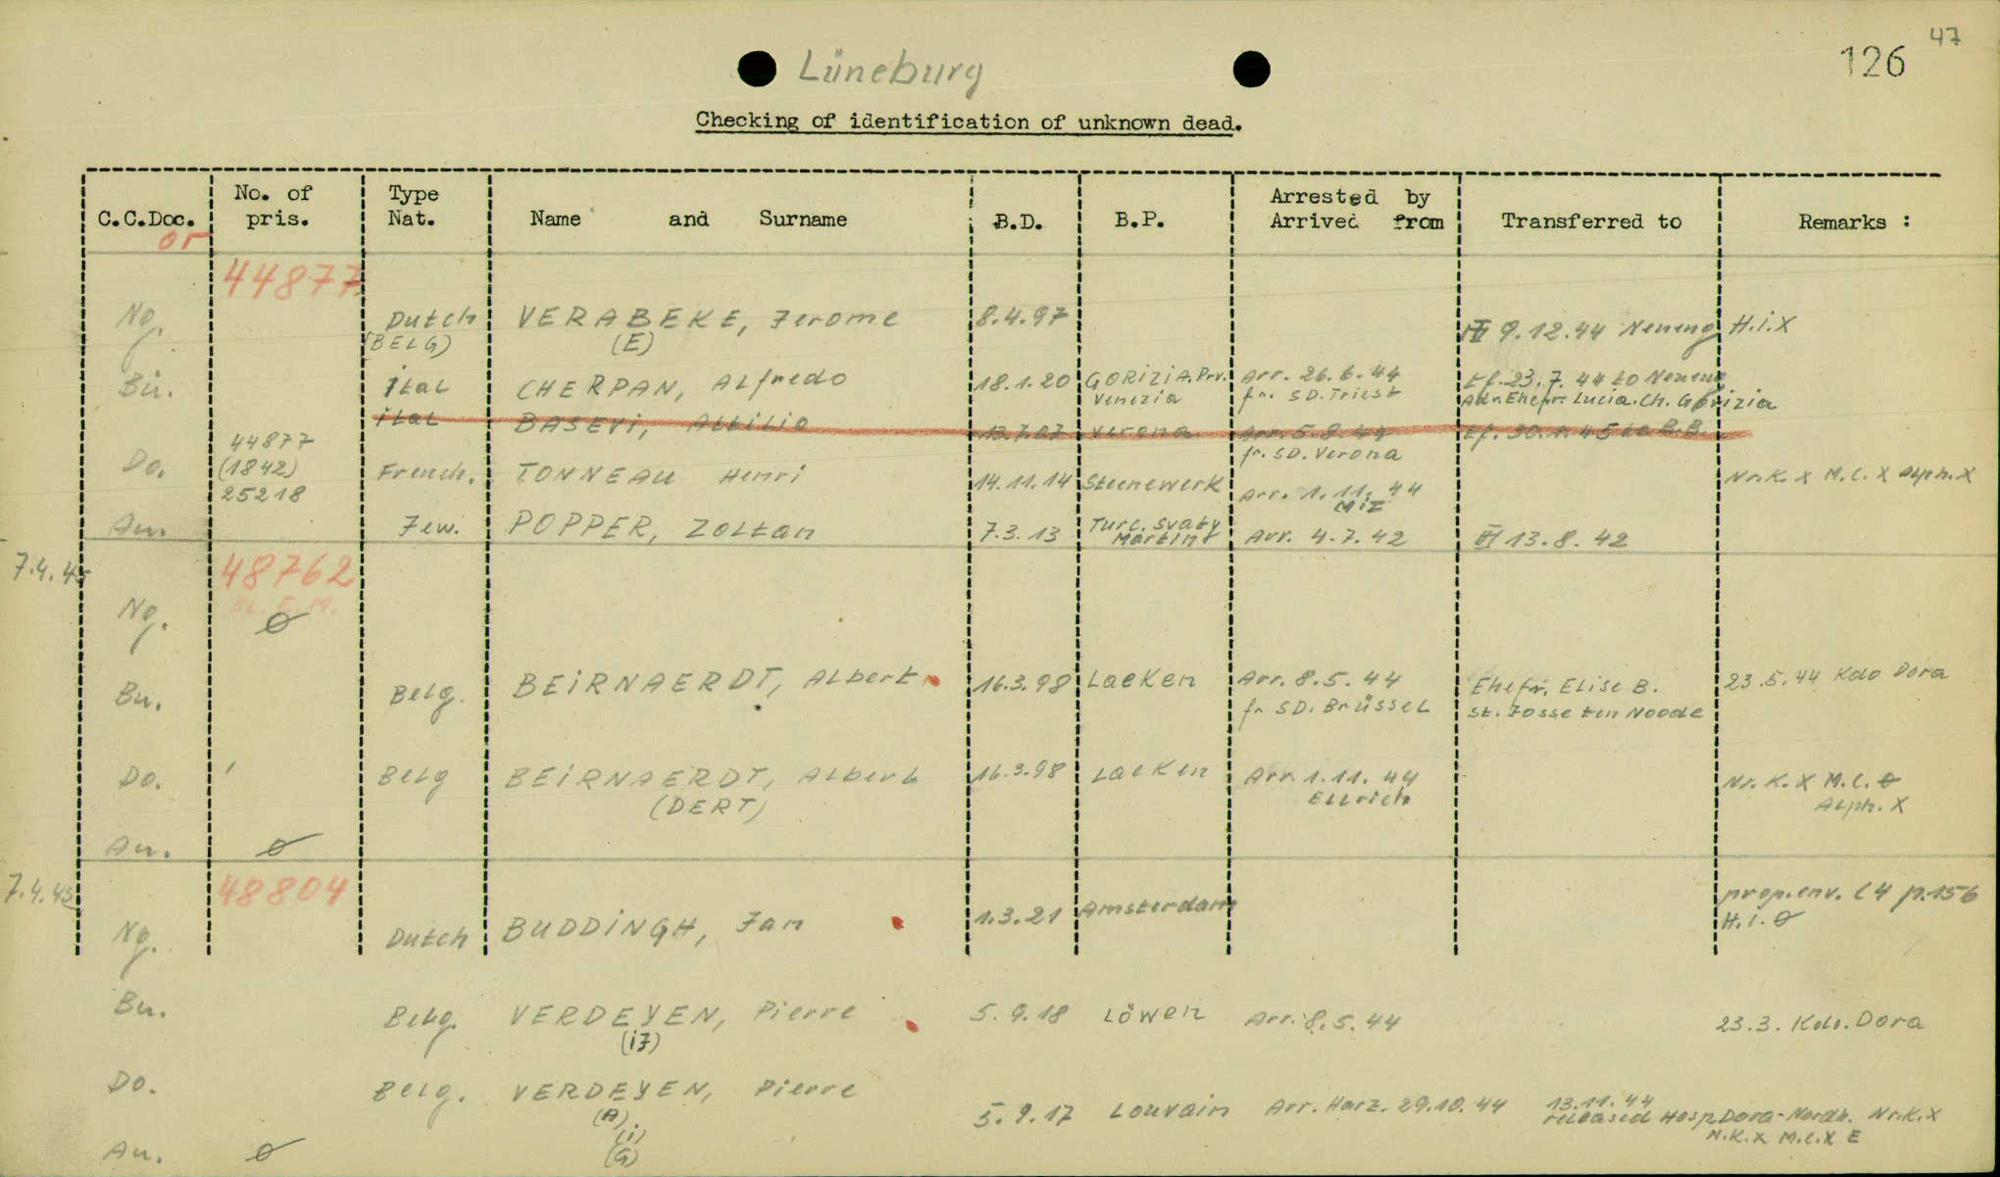 47
126
Lüneburg
Checking of identification of unknown dead.
C.C.Doc. No. of pris. Type Nat. Name and Surname B.D. B.P. Arrested by Arrived from Transferred to Remarks :
or
44877
Ng. Dutch VERABEKE, Jerome 8.4.97 9.12.44 Neueng H.i.X
(BELG) (E)
Bu. ital CHERPAN, ALfredo 18.1.20 GORiZiA.Prv. Arr. 26.6.44 tf. 23.7.44 to Neueng
Venezia fr. SD.Triest Adr.Ehefr. Lucia.Ch. Gorizia
ital BASEVi, Attilio 13.7.07 Verona Arr. 5.8.44 tf. 30.1.45 to B.B.
fr. SD. Verona
44877
Do. (1842) French. TONNEAU Henri 14.11.14 Steenewerk Arr. 1.11.44 Nr.K. X M.C. X Alph. X
25218 Miz
Au. Jew. POPPER, Zoltan 7.3.13 Turc. Svaty Arr. 4.7.42 13.8.42
Martint
7.4.45 48762
Ng. Ø
Bu. Belg. BEiRNAERDT, ALbert 16.3.98 Laeken Arr. 8.5.44 Ehefr. Elise B. 23.5.44 Kdo Dora
fr SD. BrüsseL St. Josse ten Noode
Do. Belg BEiRNAERDT, ALbert 16.3.98 Laeken Arr. 1.11.44 Nr. K. X M.C. Ø
(DERT) ELLrich ALph. X
Au. Ø
7.4.45 48804
prop.env. L4 p.156
Ng. Dutch BUDDiNGH, Jan 1.3.21 Amsterdam H.i. Ø
Bu. Belg. VERDEYEN, Pierre 5.9.18 Löwen Arr. 8.5.44 23.3. Kdo. Dora
(iJ)
Do. Belg. VERDEYEN, Pierre
(A) 5.9.17 Louvain Arr. Harz. 29.10.44 13.11.44
released Hosp Dora-Nordh. Nr.K.X
(i) N.K.X M.C.X E
(G)
Au. Ø